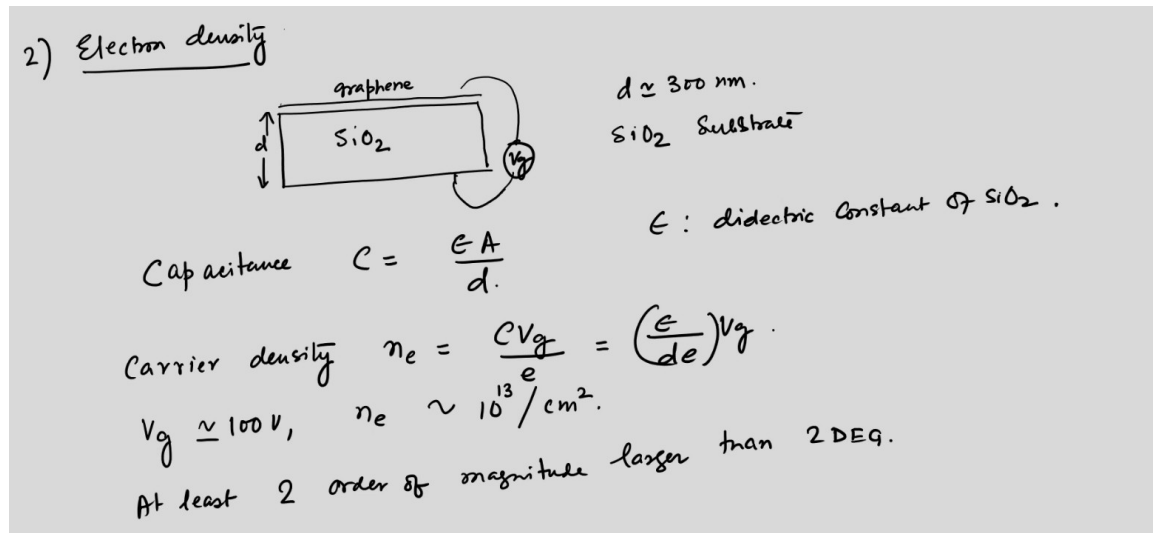 2) Electron density
graphene
d
SiO2
Vg
d ≃ 300 nm.
SiO2 Substrate
ϵ : dielectric Constant of SiO2 .
Capacitance C = ϵ A / d.
Carrier density ne = CVg / e = (ϵ / de) Vg .
Vg ≃ 100 V, ne ~ 10^13 / cm^2.
At least 2 order of magnitude larger than 2DEG.